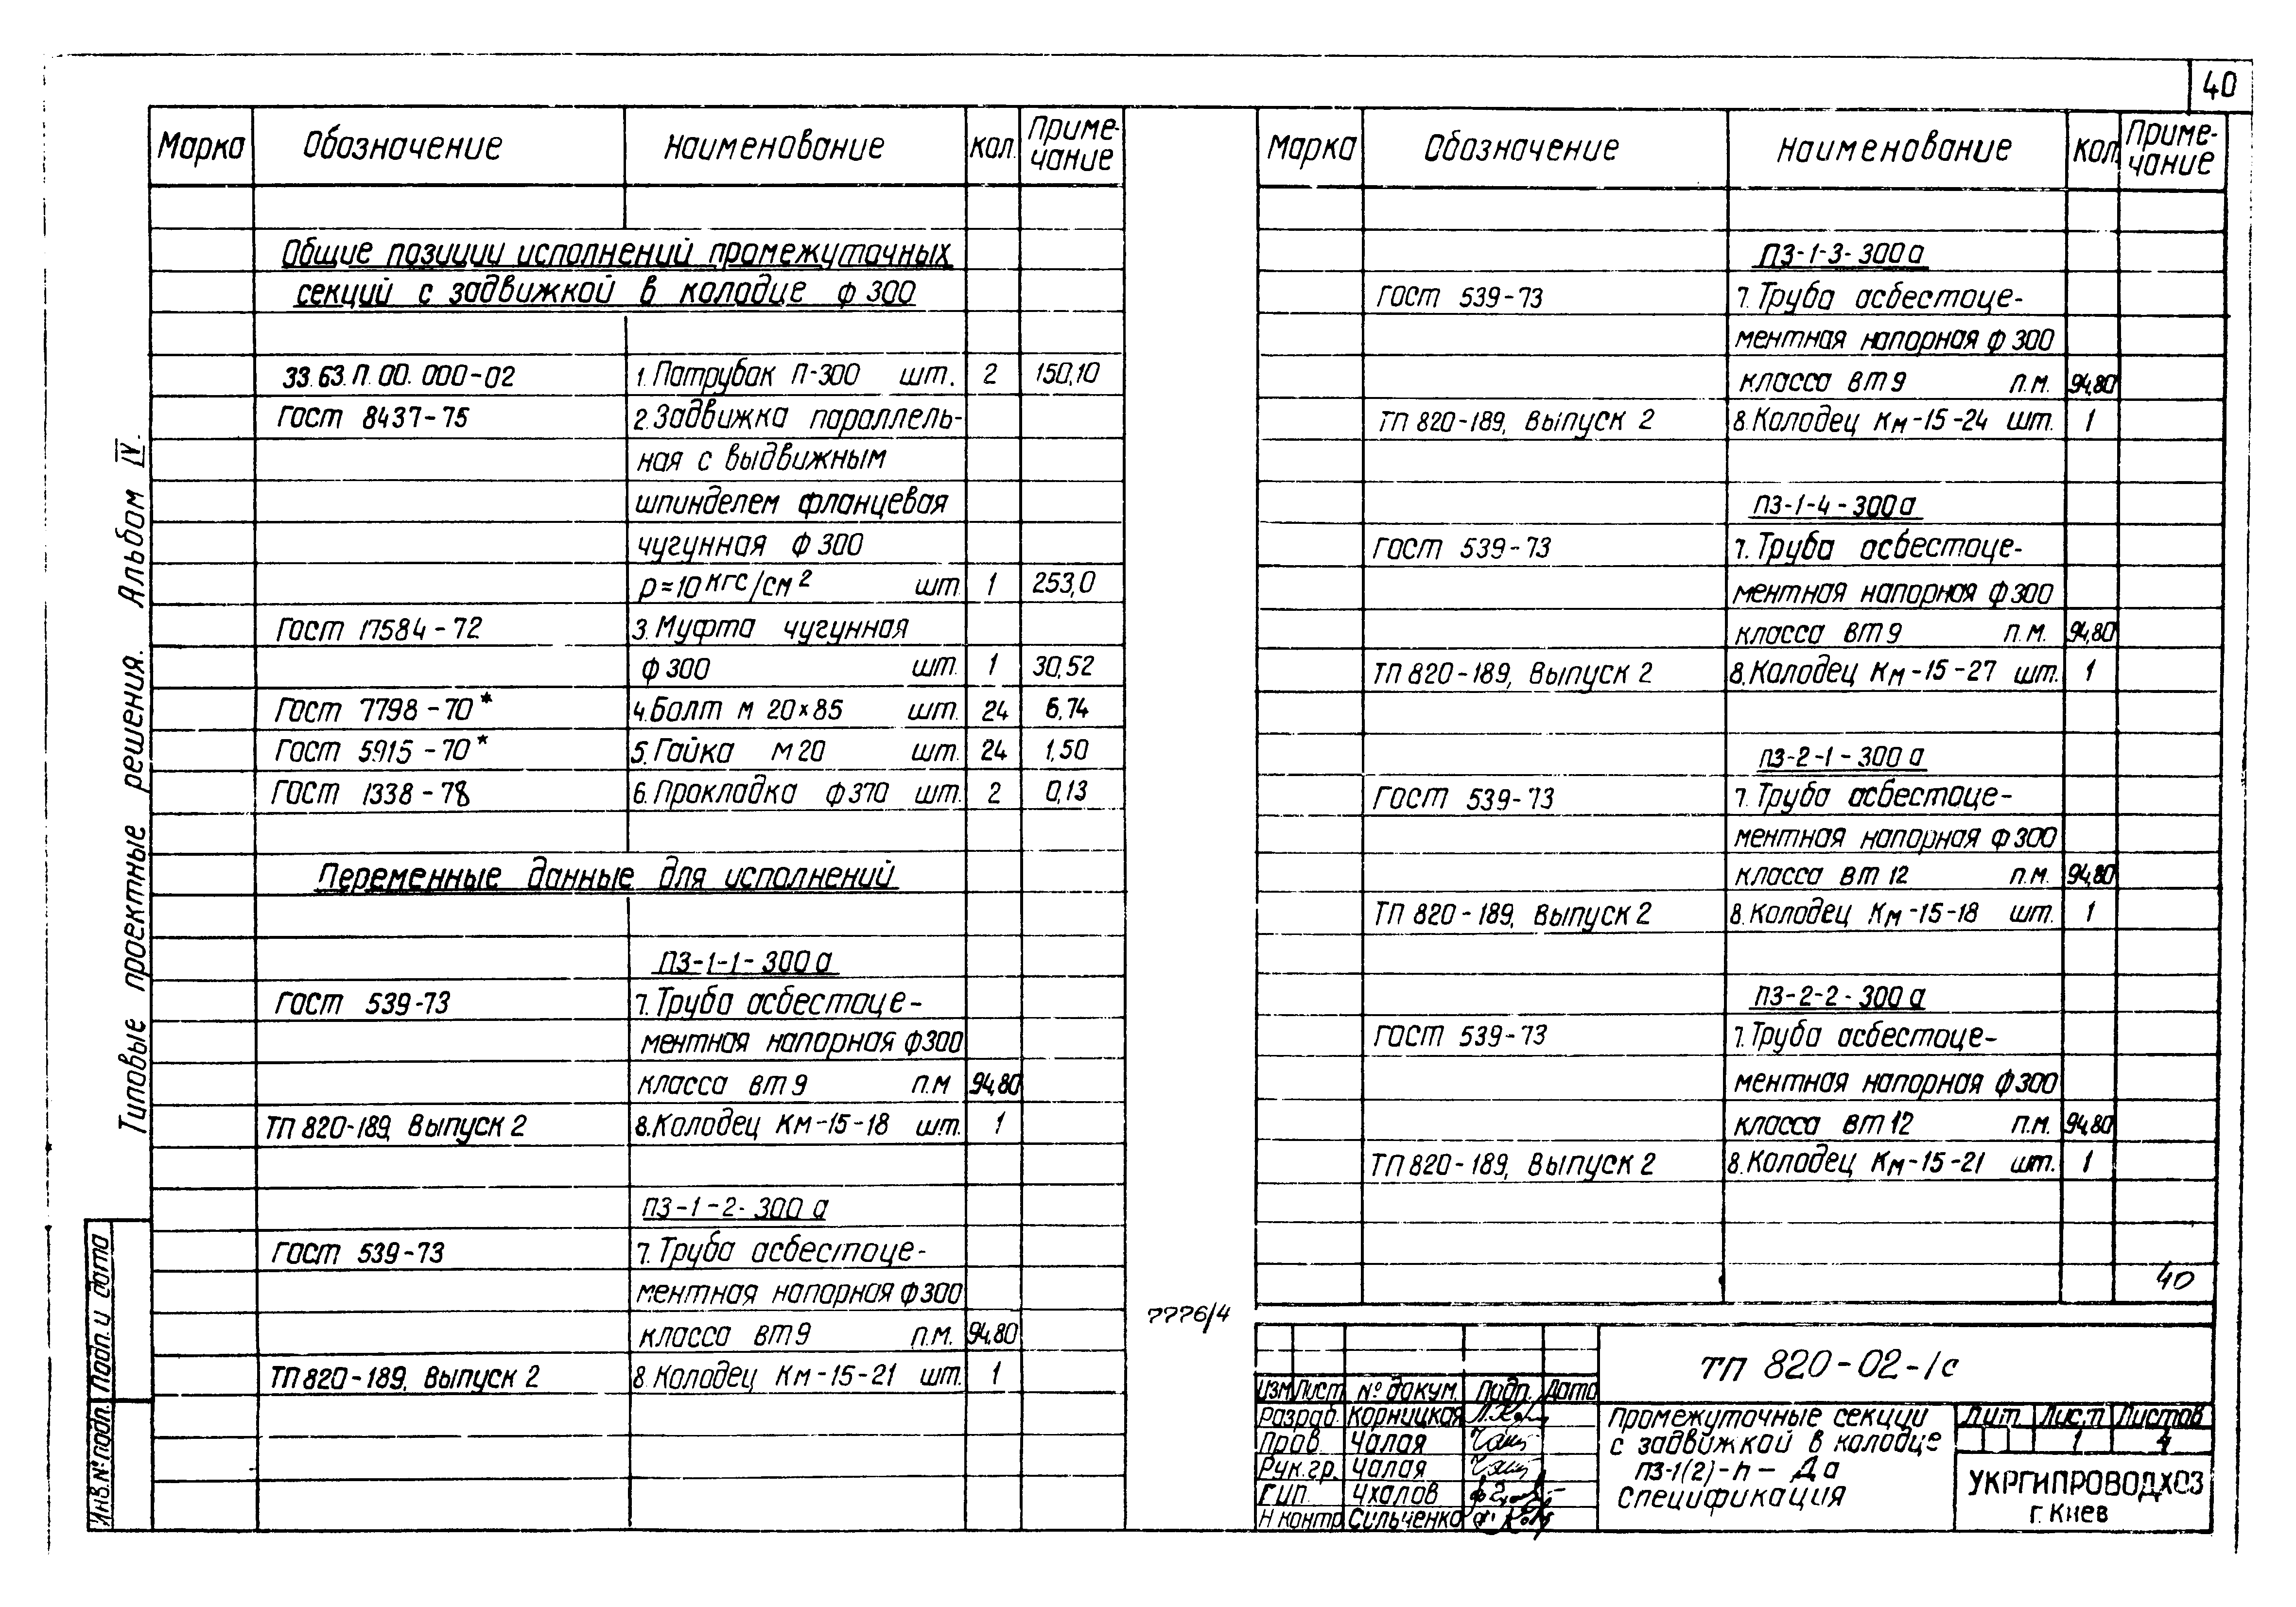 40
Марка Обозначение Наименование Кол. Приме-
чание
Общие позиции исполнений промежуточных
секций с задвижкой в колодце ф 300
33.63.П.00.000-02 1. Патрубок П-300 шт. 2 150,10
ГОСТ 8437-75 2. Задвижка параллель-
ная с выдвижным
шпинделем фланцевая
чугунная ф 300
р=10 кгс/см² шт 1 253,0
ГОСТ 17584-72 3. Муфта чугунная
ф 300 шт. 1 30,52
ГОСТ 7798-70* 4. Болт М 20×85 шт. 24 6,74
ГОСТ 5915-70* 5. Гайка М 20 шт. 24 1,50
ГОСТ 1338-78 6. Прокладка ф 370 шт. 2 0,13
Переменные данные для исполнений
ПЗ-1-1-300а
ГОСТ 539-73 7. Труба асбестоце-
ментная напорная ф 300
класса ВТ 9 п.м 94,80
ТП 820-189, Выпуск 2 8. Колодец Км-15-18 шт. 1
ПЗ-1-2-300а
ГОСТ 539-73 7. Труба асбестоце-
ментная напорная ф 300
класса ВТ 9 п.м. 94,80
ТП 820-189, Выпуск 2 8. Колодец Км-15-21 шт. 1
Марка Обозначение Наименование Кол. Приме-
чание
ПЗ-1-3-300а
ГОСТ 539-73 7. Труба асбестоце-
ментная напорная ф 300
класса ВТ 9 п.м. 94,80
ТП 820-189, Выпуск 2 8. Колодец Км-15-24 шт. 1
ПЗ-1-4-300а
ГОСТ 539-73 7. Труба асбестоце-
ментная напорная ф 300
класса ВТ 9 п.м. 94,80
ТП 820-189, Выпуск 2 8. Колодец Км-15-27 шт. 1
ПЗ-2-1-300а
ГОСТ 539-73 7. Труба асбестоце-
ментная напорная ф 300
класса ВТ 12 п.м. 94,80
ТП 820-189, Выпуск 2 8. Колодец Км-15-18 шт. 1
ПЗ-2-2-300а
ГОСТ 539-73 7. Труба асбестоце-
ментная напорная ф 300
класса ВТ 12 п.м. 94,80
ТП 820-189, Выпуск 2 8. Колодец Км-15-21 шт. 1
40
7776/4
ТП 820-02-1с
Изм Лист № докум. Подп. Дата
Разраб. Корницкая
Пров Чалая
Рук.гр. Чалая
ГИП Чхалов
Н контр Сильченко
Промежуточные секции
с задвижкой в колодце
ПЗ-1(2)-h-Да
Спецификация
Лит. Лист Листов
1 4
УКРГИПРОВОДХОЗ
г. Киев
Типовые проектные решения. Альбом IV.
Инв.№ подл. Подп. и дата